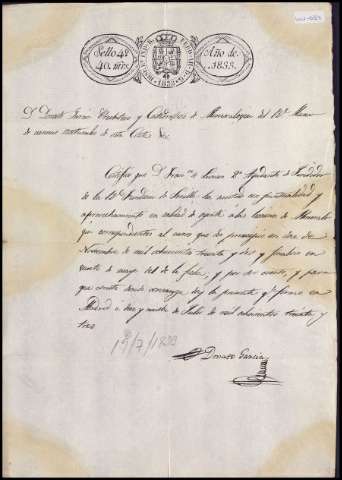 Sello 4º
40. mrs.
Año de
1833.
D. Donato García Presbítero y Catedrático de Mineralogía del Rl. Museo
de ciencias naturales de esta Corte &c.
Certifico que D. Franco. de 2º Ayudante de Fundidor
de la Rl. Fundición de Sevilla ha asistido con puntualidad y
aprovechamiento en calidad de oyente a las lecciones de Mineralo-
gía correspondientes al curso que dio principio en dos de
Noviembre de mil ochocientos treinta y dos y finalizó en
veinte de mayo del de la fecha, y por ser cierto, y para
que conste donde convenga, doy la presente que firmo en
Madrid a diez y nueve de Julio de mil ochocientos treinta y
tres
19/7/1833
Donato García